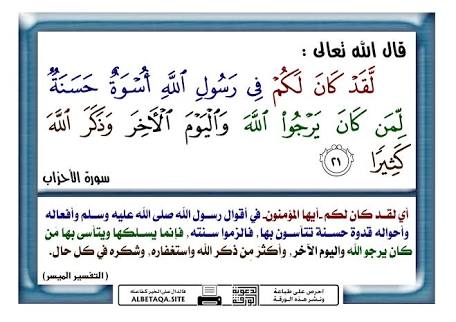 قال الله تعالى :
لَّقَدْ كَانَ لَكُمْ فِى رَسُولِ ٱللَّهِ أُسْوَةٌ حَسَنَةٌ
لِّمَن كَانَ يَرْجُوا۟ ٱللَّهَ وَٱلْيَوْمَ ٱلْـَٔاخِرَ وَذَكَرَ ٱللَّهَ
كَثِيرًا ٢١
سورة الأحزاب
أي لقـد كـان لكـم -أيها المؤمنون- في أقوال رسول الله صلى الله عليه وسلم وأفعاله
وأحواله قدوة حسنـة تتأسون بها , فالزموا سنته , فإنما يسلكها ويتأسى بها من
كان يرجو الله واليوم الآخر , وأكثر من ذكر الله واستغفاره , وشكره في كل حال.
( التفسير الميسر )
احرص على طباعة
ونشر هذه الورقة
دعوتك
الورقة
فالدال على الخير كفاعله
ALBETAQA.SITE